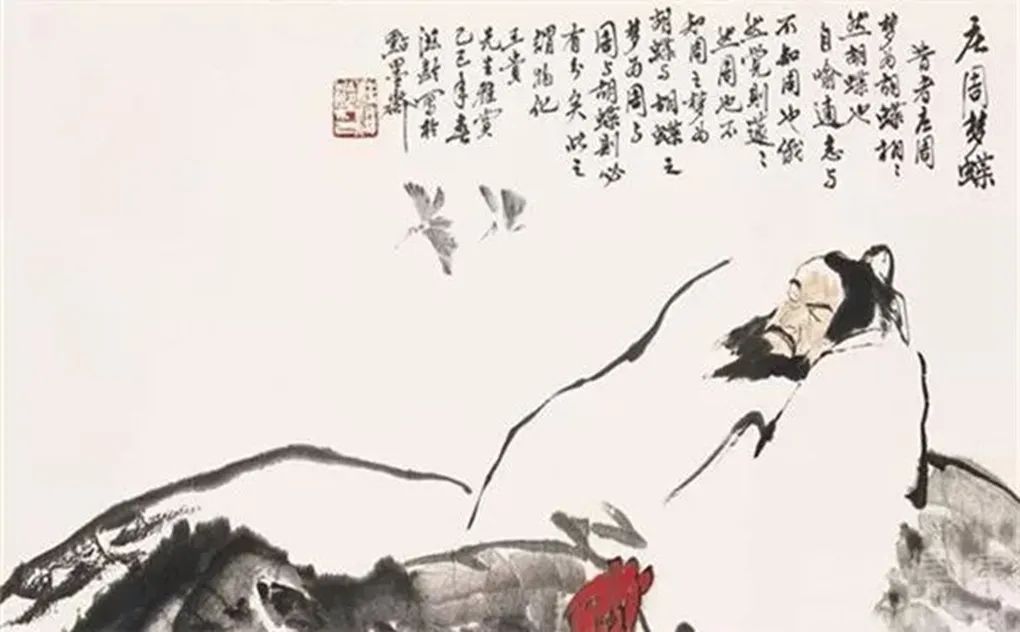 庄周梦蝶
昔者庄周
梦为胡蝶栩〻
然胡蝶也
自喻適志与
不知周也俄
然觉则蘧〻
然周也不
知周之梦为
胡蝶与胡蝶之
梦为周与
周与胡蝶则必
有分矣此之
谓物化
王贵
先生雅赏
己巳年春
写於
點墨斋